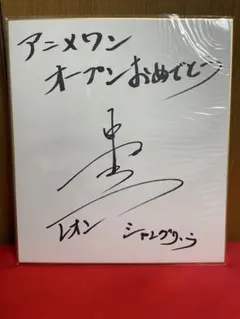 アニメワン
オープンおめでとう
レオン
シャングリラ